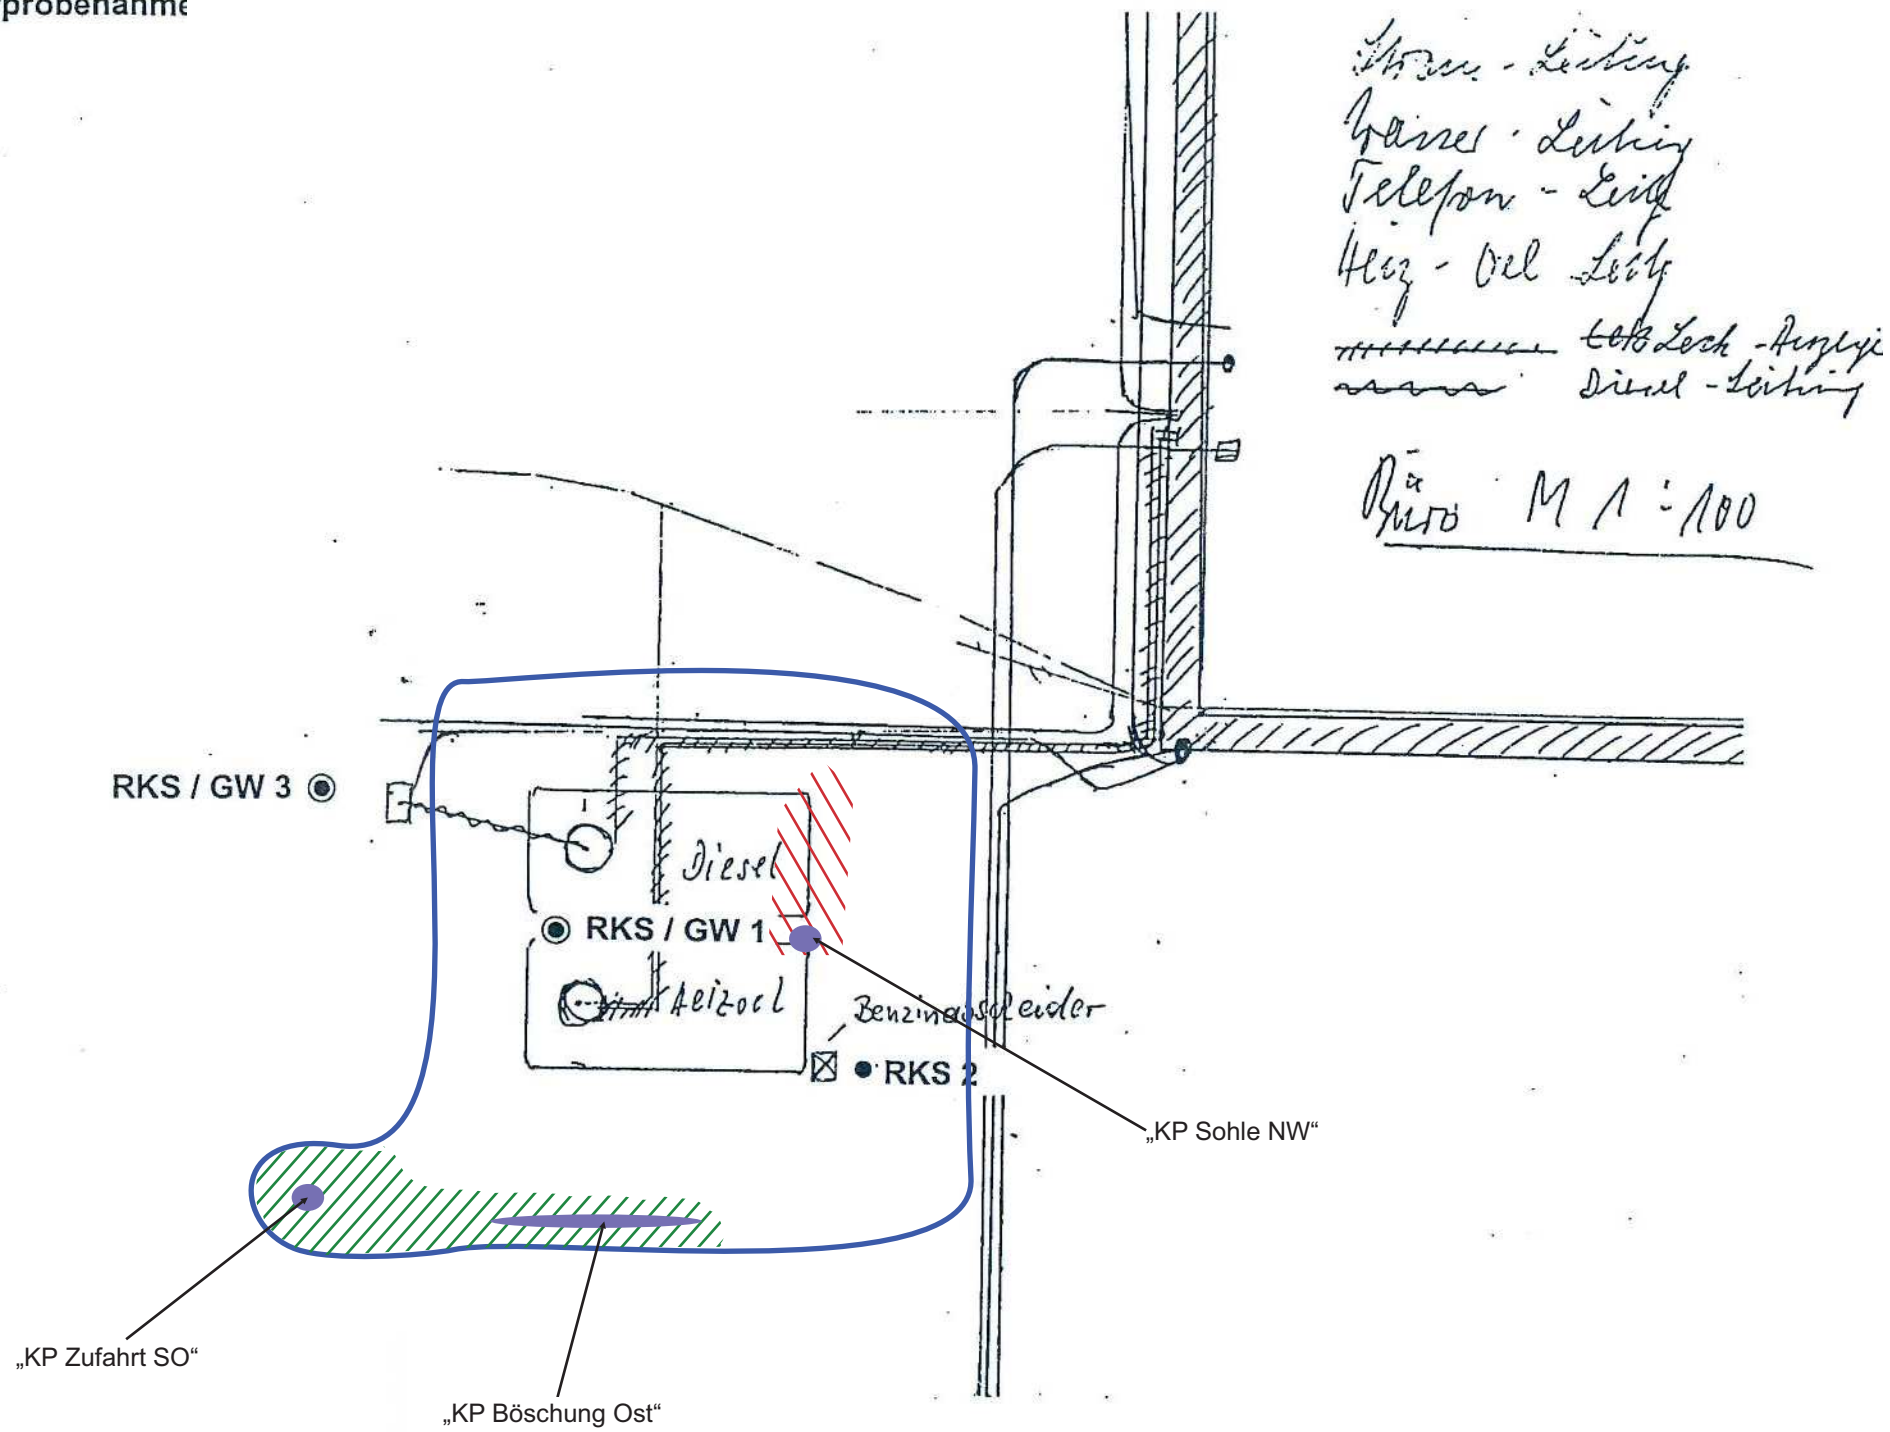 probenahme
Strom - Leitung
Wasser - Leitung
Telefon - Leitg
Heiz - Oel Leitg
Leck - Anzeige
Diesel - Leitung
Büro M 1 : 100
RKS / GW 3
Diesel
RKS / GW 1
Heizoel
Benzinabscheider
RKS 2
„KP Sohle NW“
„KP Zufahrt SO“
„KP Böschung Ost“